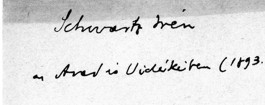 Schwartz Irén
az Arad és Vidékében (1893.